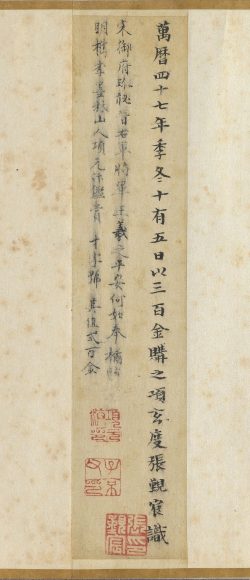 萬曆四十七年季冬十有五日以三百金購之項玄度張覲宸識
宋御府珍秘晉右軍將軍王羲之平安何如奉橘帖
明檇李墨林山人項元汴鑑賞 字號 其值貳百金
項元汴印
子京父印